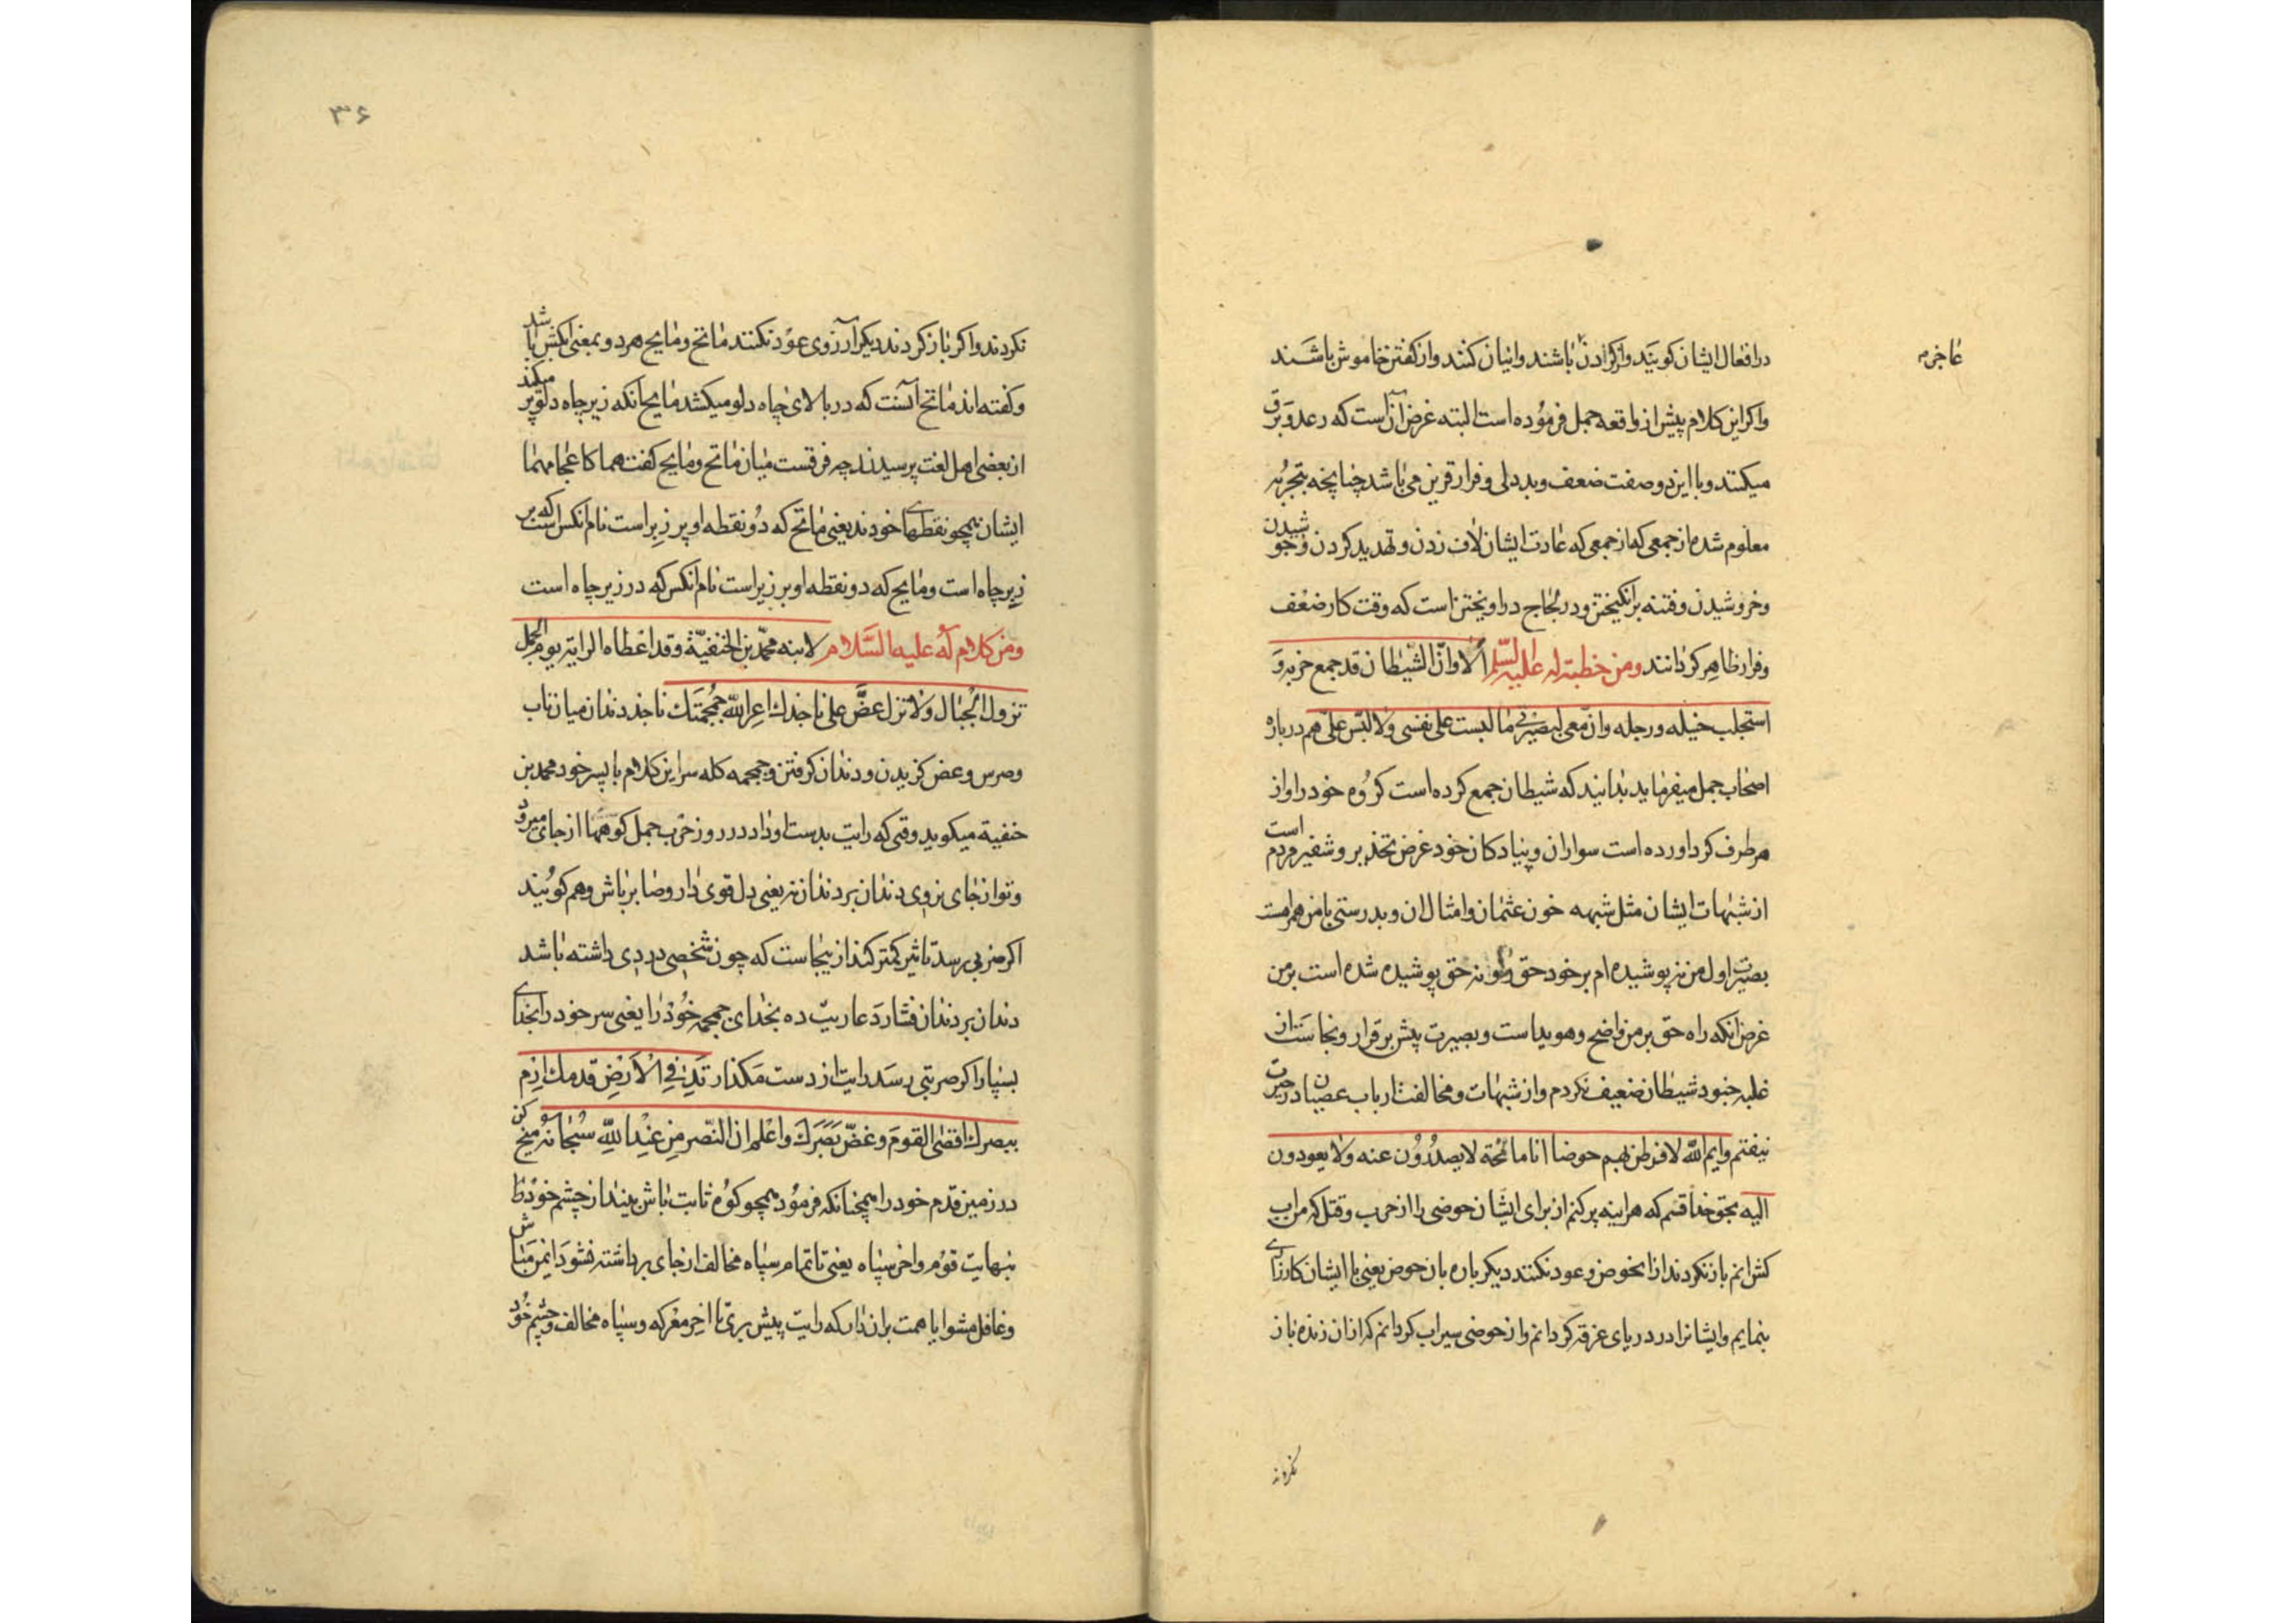 عاجزم
در افعال ایشان کویند واکر ادن باشند وانیان کنند واز کفتن خاموش باشند
واکر این کلام پیش از واقعه جمل فرموده است البته غرض آن است که رعد و برق
میکنند وبا این دو صفت ضعف وبددلی وفرار قرین می باشد چنانچه بتجربه
معلوم شده از جمعی که از جمعی که عادت ایشان لاف زدن و تهدید کردن وجوشیدن
وخروشیدن وفتنه برانکیختن ودر لجاج دراویختن است که وقت کار ضعف
وفرار ظاهر کردانند ومن خطبة له علیه السلم ألا وان الشیطان قد جمع حزبه و
استجلب خیله ورجله وان معی لبصیرتی ما لبست علی نفسی ولا لبس علی هم درباره
اصحاب جمل میفرماید بدانید که شیطان جمع کرده است کروه خود را واز
هر طرف کرد اورده است سواران وپیادکان خود غرض تحذیر و تنفیر مردم است
از شبهات ایشان مثل شبهه خون عثمان وامثال ان وبدرستی با من همراهست
بصیرت اول من نپوشیده ام بر خود حق را ونه حق پوشیده شده است بر من
غرض انکه راه حق بر من واضح وهویداست وبصیرت پیش برقرار وبجاست از
غلبه جنود شیطان ضعیف نکردم واز شبهات ومخالفت ارباب عصیان در حیرت
نیفتم وایم الله لافرطن لهم حوضا انا ماتحه لا یصدرون عنه ولا یعودون
الیه بحق خدا قسم که هراینه پر کنم از برای ایشان حوضی را از حرب وقتل که من اب
کش انم باز نکردند از انحوض وعود نکنند دیکر باره بان حوض یعنی با ایشان کارزاری
بنمایم وایشانرا در دریای غرقه کردانم واز حوضی سیراب کردانم که از ان زنده باز
نکردند
۳۶
نکردند واکر باز کردند دیکر آرزوی عود نکنند ماتح ومایح هر دو بمعنی ابکش باشد
وکفته اند ماتح آنست که در بالای چاه دلو میکشد مایح انکه زیر چاه دلو پر میکند
از بعضی اهل لغت پرسیدند چه فرقست میان ماتح ومایح کفت هما کاعجامهما
ایشان همچو نقطهای خودند یعنی ماتح که دو نقطه او بر زبر است نام انکس است که بر
زبر چاه است ومایح که دو نقطه او بر زیر است نام انکس که در زیر چاه است
ومن کلام له علیه السلام لابنه محمد بن الحنفیة وقد اعطاه الرایة یوم الجمل
تزول الجبال ولا تزل عض علی ناجذك اعر الله جمجمتك ناجذ دندان میان ناب
وضرس وعض کزیدن ودندان کرفتن وجمجمه کله سر این کلام با پسر خود محمد بن
حنفیة میکوید وقتی که رایت بدست او داد در روز حرب جمل کوهها از جای میرود
وتو از جای نروی دندان بر دندان نه یعنی دل قوی دار وصابر باش وهم کویند
اکر ضربی رسد تاثیر کمتر کند ازینجاست که چون شخصی دردی داشته باشد
دندان بر دندان فشارد عاریت ده بخدای جمجمه خود را یعنی سر خود را بخدای
بسپار اکر ضربتی رسد رایت از دست مکذار تد فی الارض قدمك ارم
ببصرك اقصی القوم وغض بصرك واعلم ان النصر من عند الله سبحانه میخ کن
در زمین قدم خود را همچنانکه فرمود همچو کوه ثابت باش بینداز چشم خود را
بنهایت قوم واخر سپاه یعنی تا تمام سپاه مخالف از جای برداشته نشود ایمن مباش
وغافل مشو یا همت بران دار که رایت پیش بری تا اخر معرکه وسپاه مخالف وچشم خود